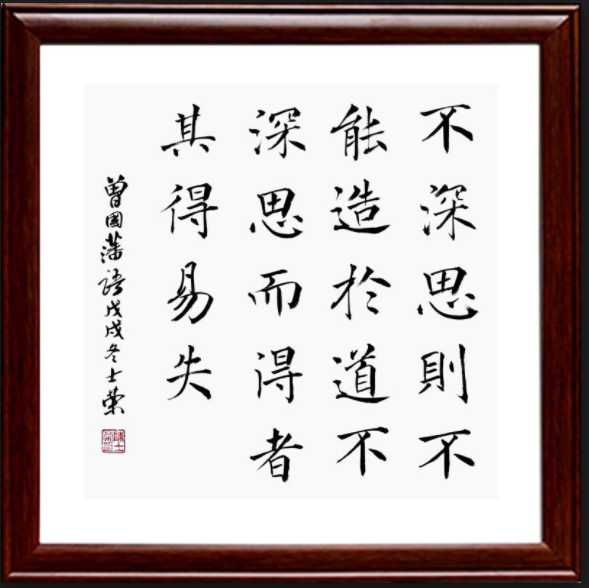 不深思則不
能造於道不
深思而得者
其得易失
曾國藩語戊戌冬士榮